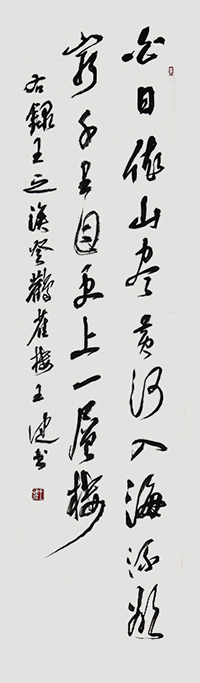 白日依山尽黄河入海流欲
穷千里目更上一层楼
右录王之涣登鹳雀楼王健书